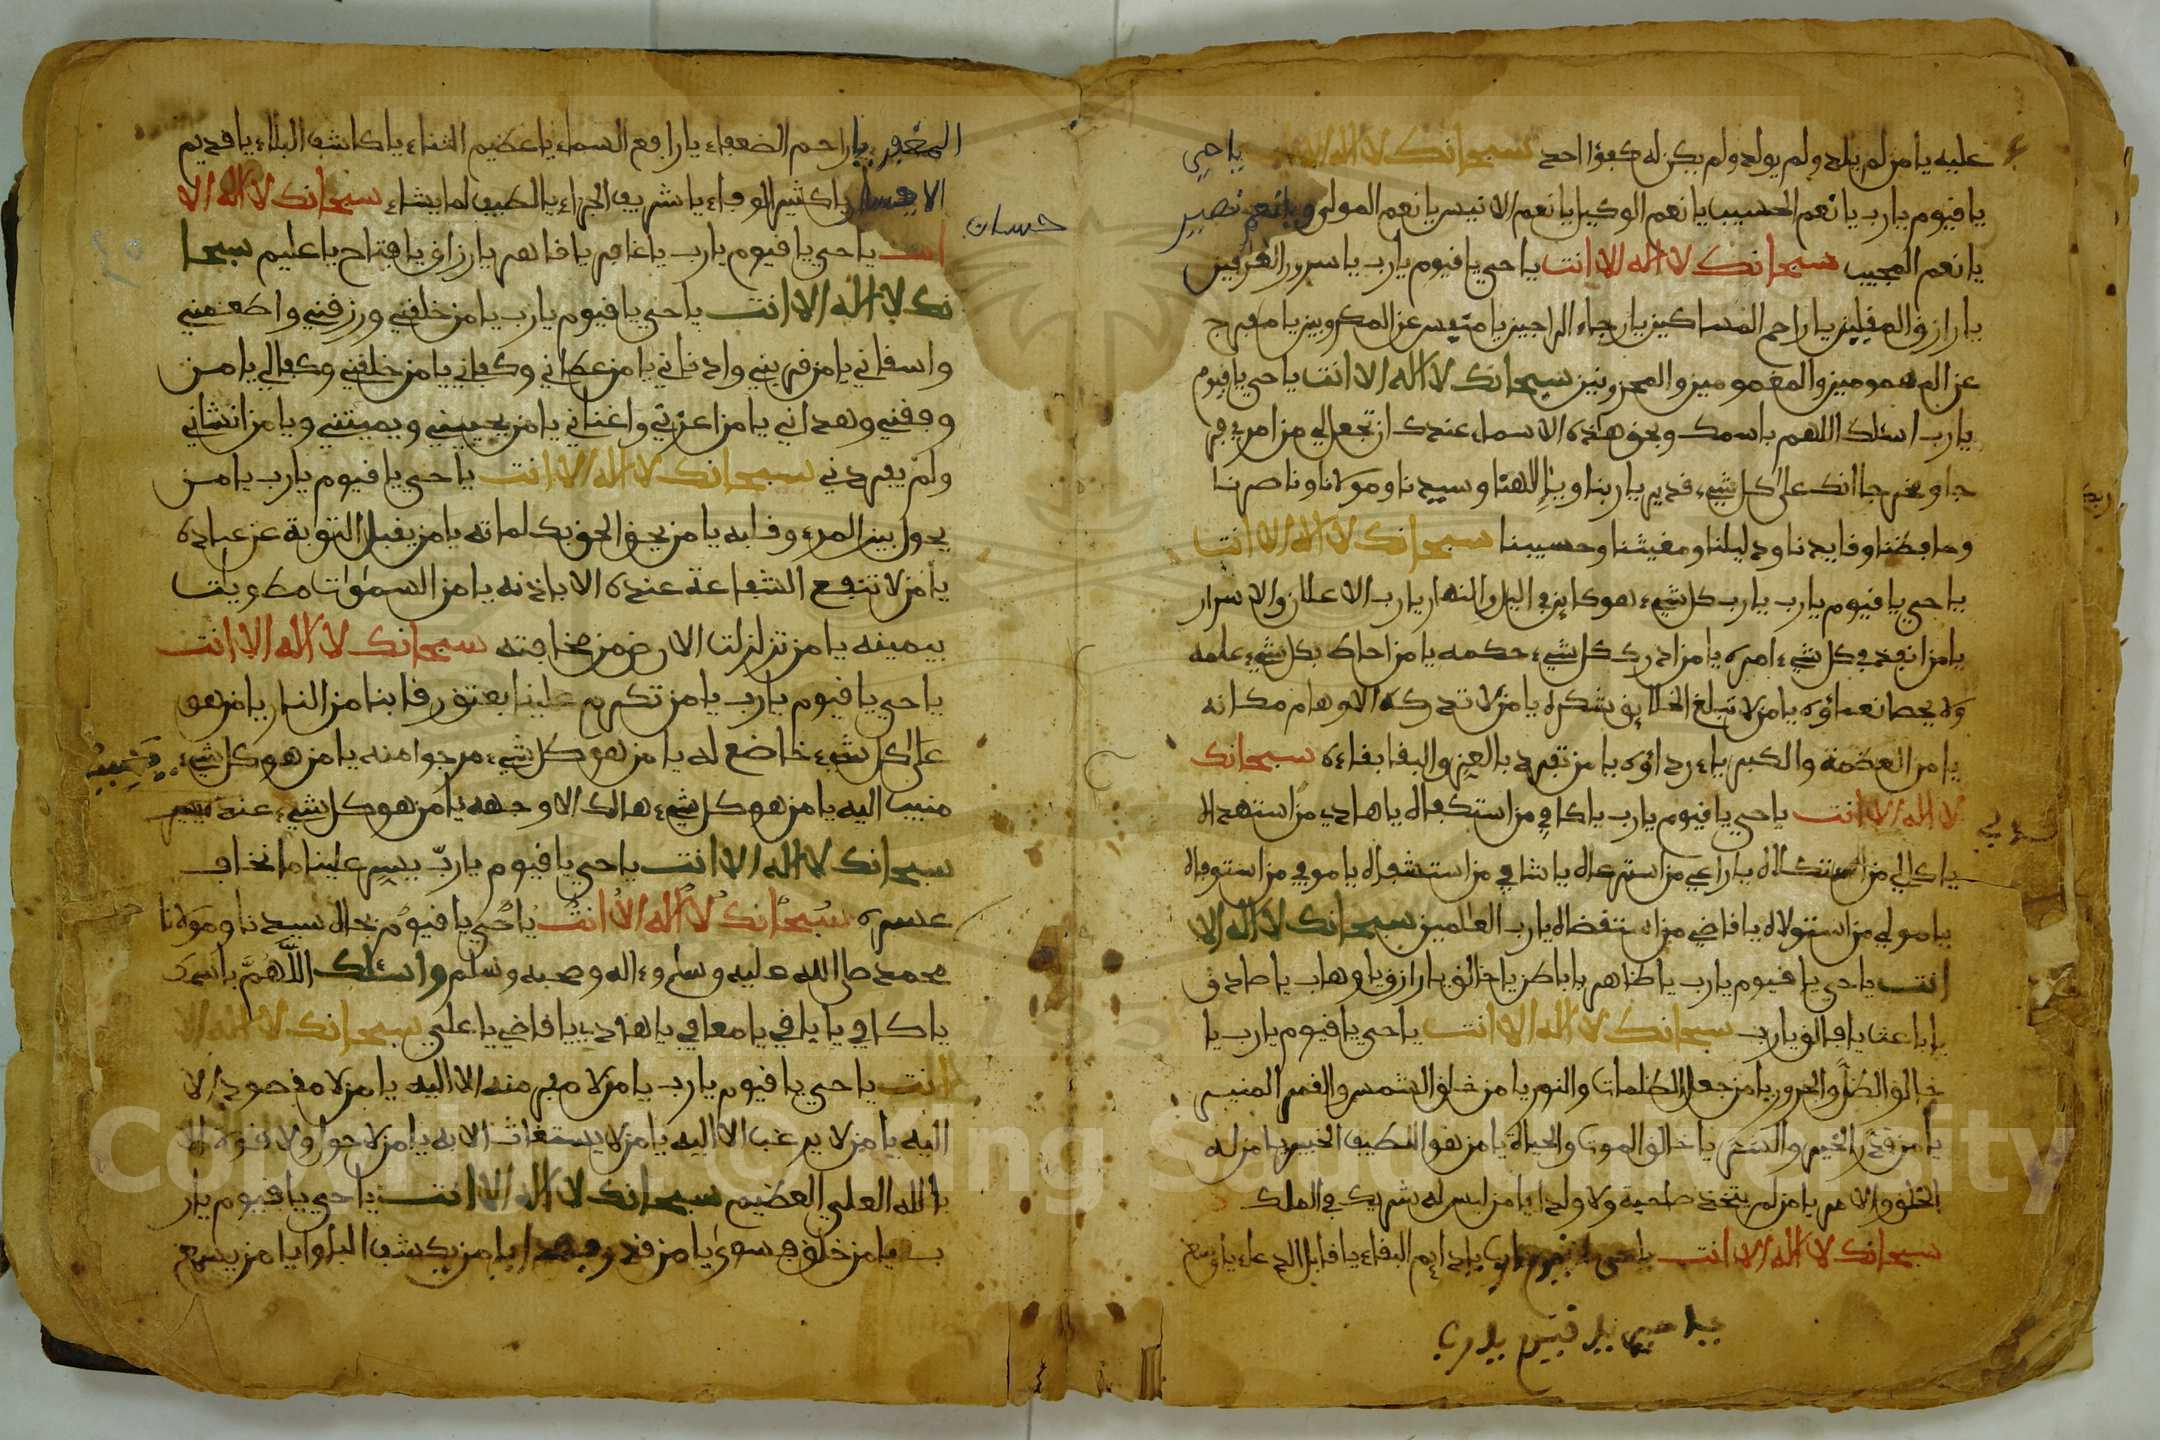 عليه يا من لم يلد ولم يولد ولم يكن له كفؤا احد سبحانك لا اله الا يا حي
يا قيوم يا رب يا نعم الحسيب يا نعم الوكيل يا نعم الانيس يا نعم المولى ويا نعم نصير
يا نعم المجيب سبحانك لا اله الا انت يا حي يا قيوم يا رب يا سرور العارفين
يا رازق المقلين يا راحم المساكين يا رجاء الراجين يا منفس عن المكروبين يا مفرج
عن المهمومين والمغمومين والمحزونين سبحانك لا اله الا انت يا حي يا قيوم
يا رب اسئلك اللهم باسمك وبحق هذه الاسماء عندك ان تجعل لي من امري فر
جا ومخرجا انك على كل شيء قدير يا ربنا ويا الاهنا وسيدنا ومولانا وناصرنا
وحافظنا وقايدنا ودليلنا ومغيثنا وحسيبنا سبحانك لا اله الا انت
يا حي يا قيوم يا رب يا رب كل شيء هو كاين في اليل والنهار يا رب الاعلان والاسرار
يا من انفذ في كل شيء امره يا من ادرك كل شيء حكمه يا من احاط بكل شيء علمه
ولا يحصا نعماؤه يا من لا تبلغ الخلايق شكره يا من لا تدركه الاوهام مكانه
يا من العظمة والكبرياء رداؤه يا من تفرد بالعز والبقا بقاءه سبحانك
لا اله الا انت يا حي يا قيوم يا رب يا كافي من استكفاه يا هادي من استهداه
يا كالي من استكلاه يا راعي من استرعاه يا شافي من استشفاه يا موفي من استوفاه
يا مولي من استولاه يا قاضي من استقضاه يا رب العالمين سبحانك لا اله الا
انت يا حي يا قيوم يا رب يا ظاهر يا باطن يا خالق يا رازق يا وهاب يا صادق
يا باعث يا فالق يا رب سبحانك لا اله الا انت يا حي يا قيوم يا رب يا
خالق الظل والحرور يا من جعل الظلمات والنور يا من خلق الشمس والقمر المنير
يا من قدر الخير والشر يا خالق الموت والحياة يا من هو اللطيف الخبير يا من له
الخلق والامر يا من لم يتخذ صاحبة ولا ولدا يا من ليس له شريك في الملك
سبحانك لا اله الا انت يا حي يا قيوم يا رب يا دايم البقاء يا قابل الدعاء يا واسع
يا حي يا قيوم يا رب
المغفرة يا راحم الضعفاء يا رافع السماء يا عظيم الثناء يا كاشف البلاء يا قديم
الاحسان يا كثير الوفاء يا شريف الجزاء يا لطيف لما يشاء سبحانك لا اله الا
حسان
انت يا حي يا قيوم يا رب يا غافر يا قاهر يا رزاق يا فتاح يا عليم سبحا
نك لا اله الا انت يا حي يا قيوم يا رب يا من خلقني ورزقني واطعمني
واسقاني يا من قربني وادناني يا من عطاني وكفاني يا من خلقني وكفالي يا من
وفقني وهداني يا من اعزني واغناني يا من يحييني ويميتني ويا من انشاني
ولم يفردني سبحانك لا اله الا انت يا حي يا قيوم يا رب يا من
يحول بين المرء وقلبه يا من يحق الحق بكلماته يا من يقبل التوبة عن عباده
يا من لا تنفع الشفاعة عنده الا باذنه يا من السموات مطويات
بيمينه يا من تزلزلت الارض من مخافته سبحانك لا اله الا انت
يا حي يا قيوم يا رب يا من تكرم علينا بعتق رقابنا من النار يا من هو
على كل شيء خاضع له يا من هو كل شيء مرجوا منه يا من هو كل شيء
منيب اليه يا من هو كل شيء هالك الا وجهه يا من هو كل شيء عنده يسير
سبحانك لا اله الا انت يا حي يا قيوم يا رب يسر علينا ما نخاف
عسره سبحانك لا اله الا انت يا حي يا قيوم بجاه سيدنا ومولانا
محمد صلى الله عليه وسلم وءاله وصحبه وسلم واسئلك اللهم باسمك
يا كافي يا شافي يا معافي يا هادي يا قاضي يا علي سبحانك لا اله الا
انت يا حي يا قيوم يا رب يا من لا مفر منه الا اليه يا من لا مقصود الا
اليه يا من لا يرغب الا اليه يا من لا يستغاث الا به يا من لا حول ولا قوة الا
بالله العلي العظيم سبحانك لا اله الا انت يا حي يا قيوم يا ر
ب يا من خلق فسوى يا من قدر فهدا يا من يكشف البلوا يا من يسمع